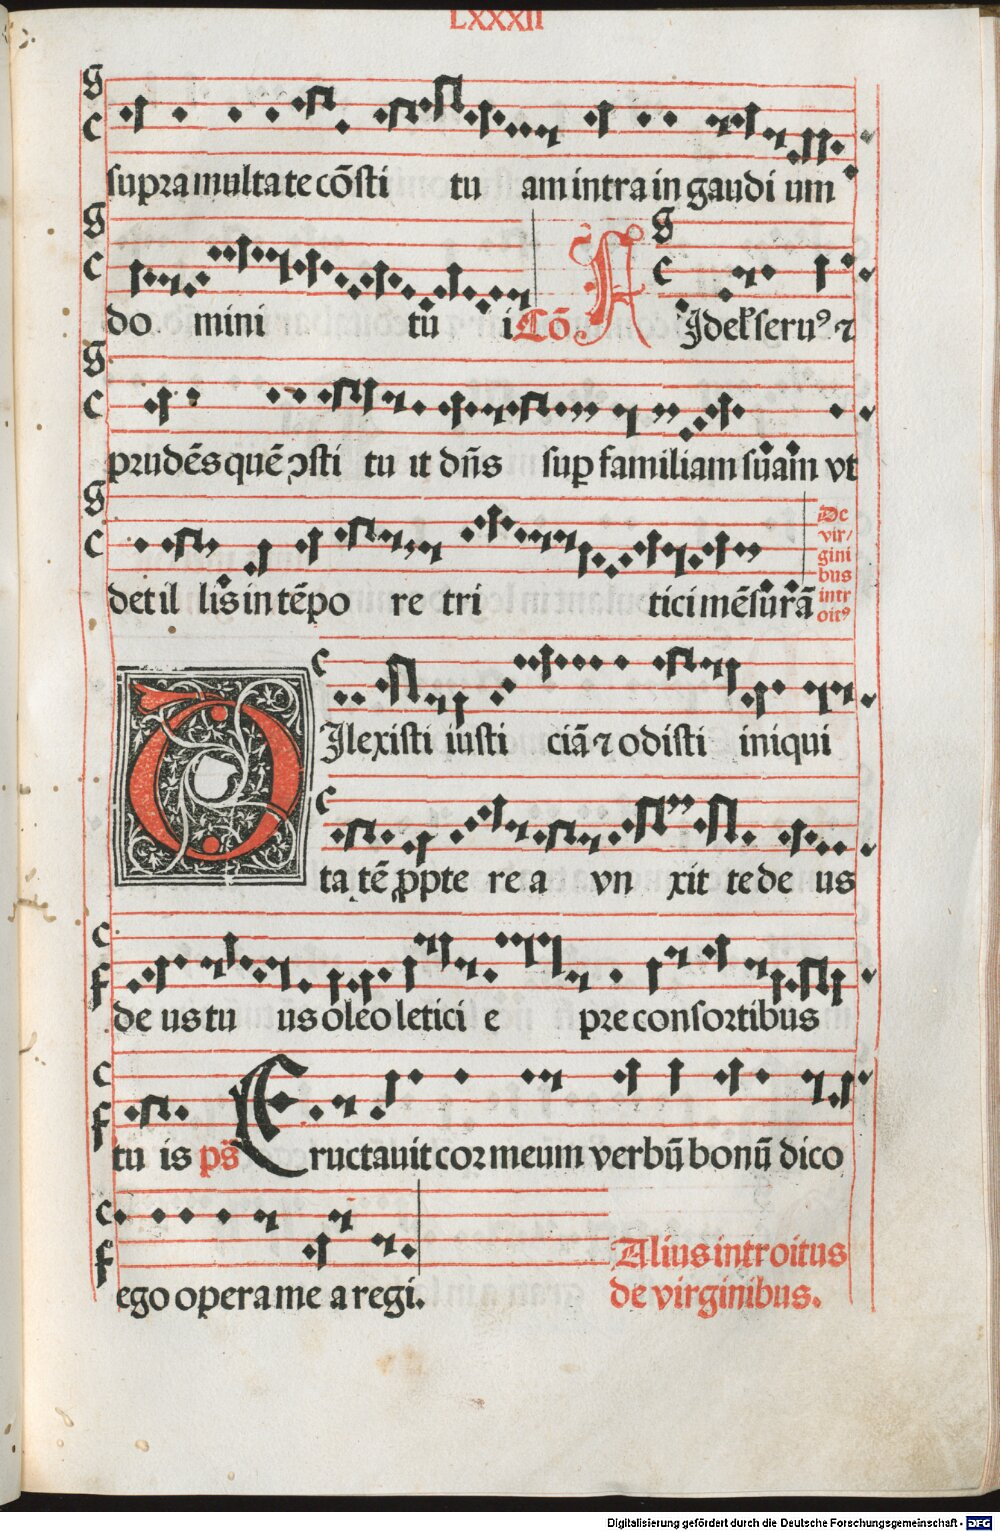 LXXXII
supra multa te cōsti tu am intra in gaudi um
do mini tu᷑ i Cō F Idel̕ seruꝰ ⁊
prudēs quē ↄsti tu it dn̄s suꝑ familiam suam vt
det il lis in tēpo re tri tici mēsurā
De
vir/
gini
bus
intr
oitꝰ
D Ilexisti iusti ciā ⁊ odisti iniqui
ta tē ꝓpte re a vn xit te de us
de us tu us oleo letici e pre consortibus
tu is ps̄ Eructauit cor meum verbū bonū dico
ego opera me a regi.
Alius introitus
de virginibus.
Digitalisierung gefördert durch die Deutsche Forschungsgemeinschaft - DFG